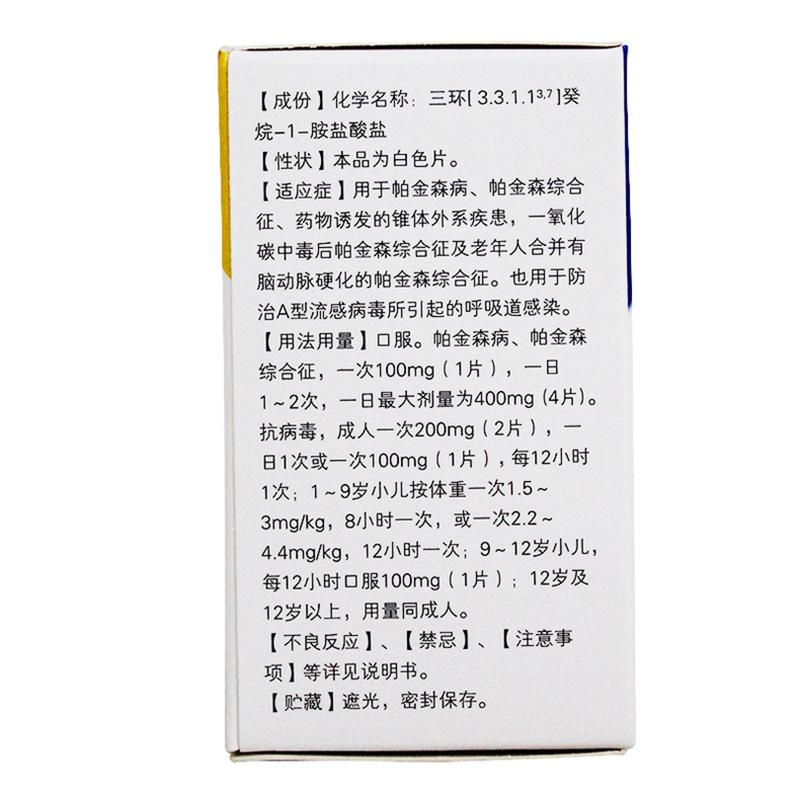 【成份】化学名称：三环[3.3.1.1³,⁷]癸
烷-1-胺盐酸盐
【性状】本品为白色片。
【适应症】用于帕金森病、帕金森综合
征、药物诱发的锥体外系疾患，一氧化
碳中毒后帕金森综合征及老年人合并有
脑动脉硬化的帕金森综合征。也用于防
治A型流感病毒所引起的呼吸道感染。
【用法用量】口服。帕金森病、帕金森
综合征，一次100mg（1片），一日
1~2次，一日最大剂量为400mg (4片)。
抗病毒，成人一次200mg（2片），一
日1次或一次100mg（1片），每12小时
1次；1~9岁小儿按体重一次1.5~
3mg/kg，8小时一次，或一次2.2~
4.4mg/kg，12小时一次；9~12岁小儿，
每12小时口服100mg（1片）；12岁及
12岁以上，用量同成人。
【不良反应】、【禁忌】、【注意事
项】等详见说明书。
【贮藏】遮光，密封保存。